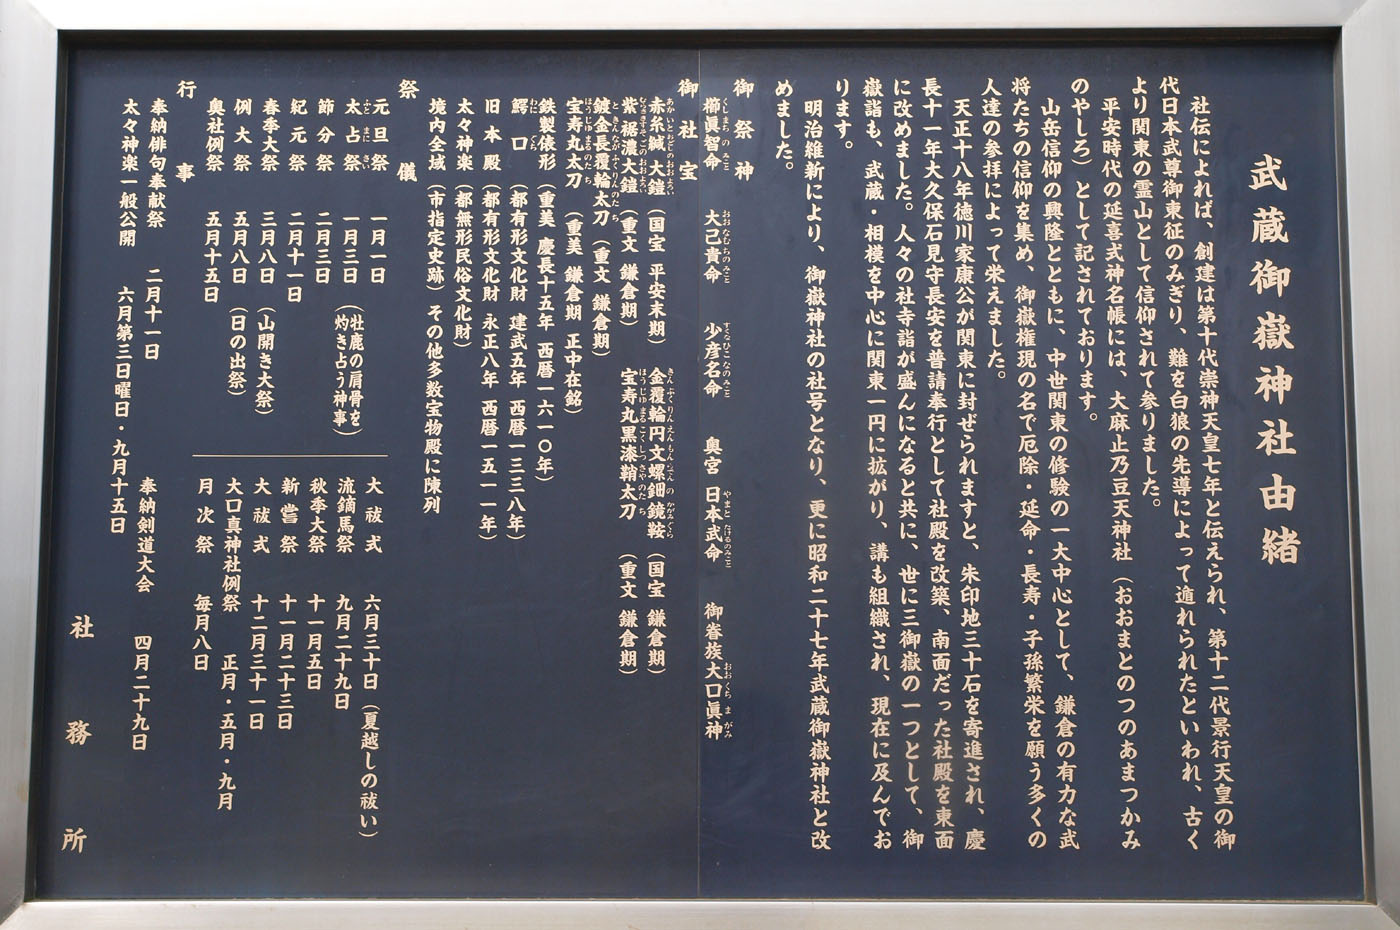 武蔵御嶽神社由緒
社伝によれば、創建は第十代崇神天皇七年と伝えられ、第十二代景行天皇の御
代日本武尊御東征のみぎり、難を白狼の先導によって遁れられたといわれ、古く
より関東の霊山として信仰されて参りました。
平安時代の延喜式神名帳には、大麻止乃豆天神社（おおまとのつのあまつかみ
のやしろ）として記されております。
山岳信仰の興隆とともに、中世関東の修験の一大中心として、鎌倉の有力な武
将たちの信仰を集め、御嶽権現の名で厄除・延命・長寿・子孫繁栄を願う多くの
人達の参拝によって栄えました。
天正十八年徳川家康公が関東に封ぜられますと、朱印地三十石を寄進され、慶
長十一年大久保石見守長安を普請奉行として社殿を改築、南面だった社殿を東面
に改めました。人々の社寺詣が盛んになると共に、世に三御嶽の一つとして、御
嶽詣も、武蔵・相模を中心に関東一円に拡がり、講も組織され、現在に及んでお
ります。
明治維新により、御嶽神社の社号となり、更に昭和二十七年武蔵御嶽神社と改
めました。
御祭神
櫛眞智命 大己貴命 少彦名命 奥宮 日本武命 御眷族大口眞神
くしまちのみこと おおなむちのみこと すくなひこなのみこと やまとたけるのみこと おおくちまがみ
御社宝
赤糸縅大鎧（国宝 平安末期） 金覆輪円文螺鈿鏡鞍（国宝 鎌倉期）
紫裾濃大鎧（重文 鎌倉期） 宝寿丸黒漆鞘太刀（重文 鎌倉期）
鍍金長覆輪太刀（重文 鎌倉期）
宝寿丸太刀（重美 鎌倉期 正中在銘）
鉄製俵形（重美 慶長十五年 西暦一六一〇年）
鰐口（都有形文化財 建武五年 西暦一三三八年）
旧本殿（都有形文化財 永正八年 西暦一五一一年）
太々神楽（都無形民俗文化財）
境内全域（市指定史跡）その他多数宝物殿に陳列
祭儀
元旦祭 一月一日
太占祭 一月三日（牡鹿の肩骨を灼き占う神事）
節分祭 二月三日
紀元祭 二月十一日
春季大祭 三月八日（山開き大祭）
例大祭 五月八日（日の出祭）
奥社例祭 五月十五日
大祓式 六月三十日（夏越しの祓い）
流鏑馬祭 九月二十九日
秋季大祭 十一月五日
新嘗祭 十一月二十三日
大祓式 十二月三十一日
大口真神社例祭 正月・五月・九月
月次祭 毎月八日
行事
奉納俳句奉献祭 二月十一日 奉納剣道大会 四月二十九日
太々神楽一般公開 六月第三日曜日・九月十五日
社務所